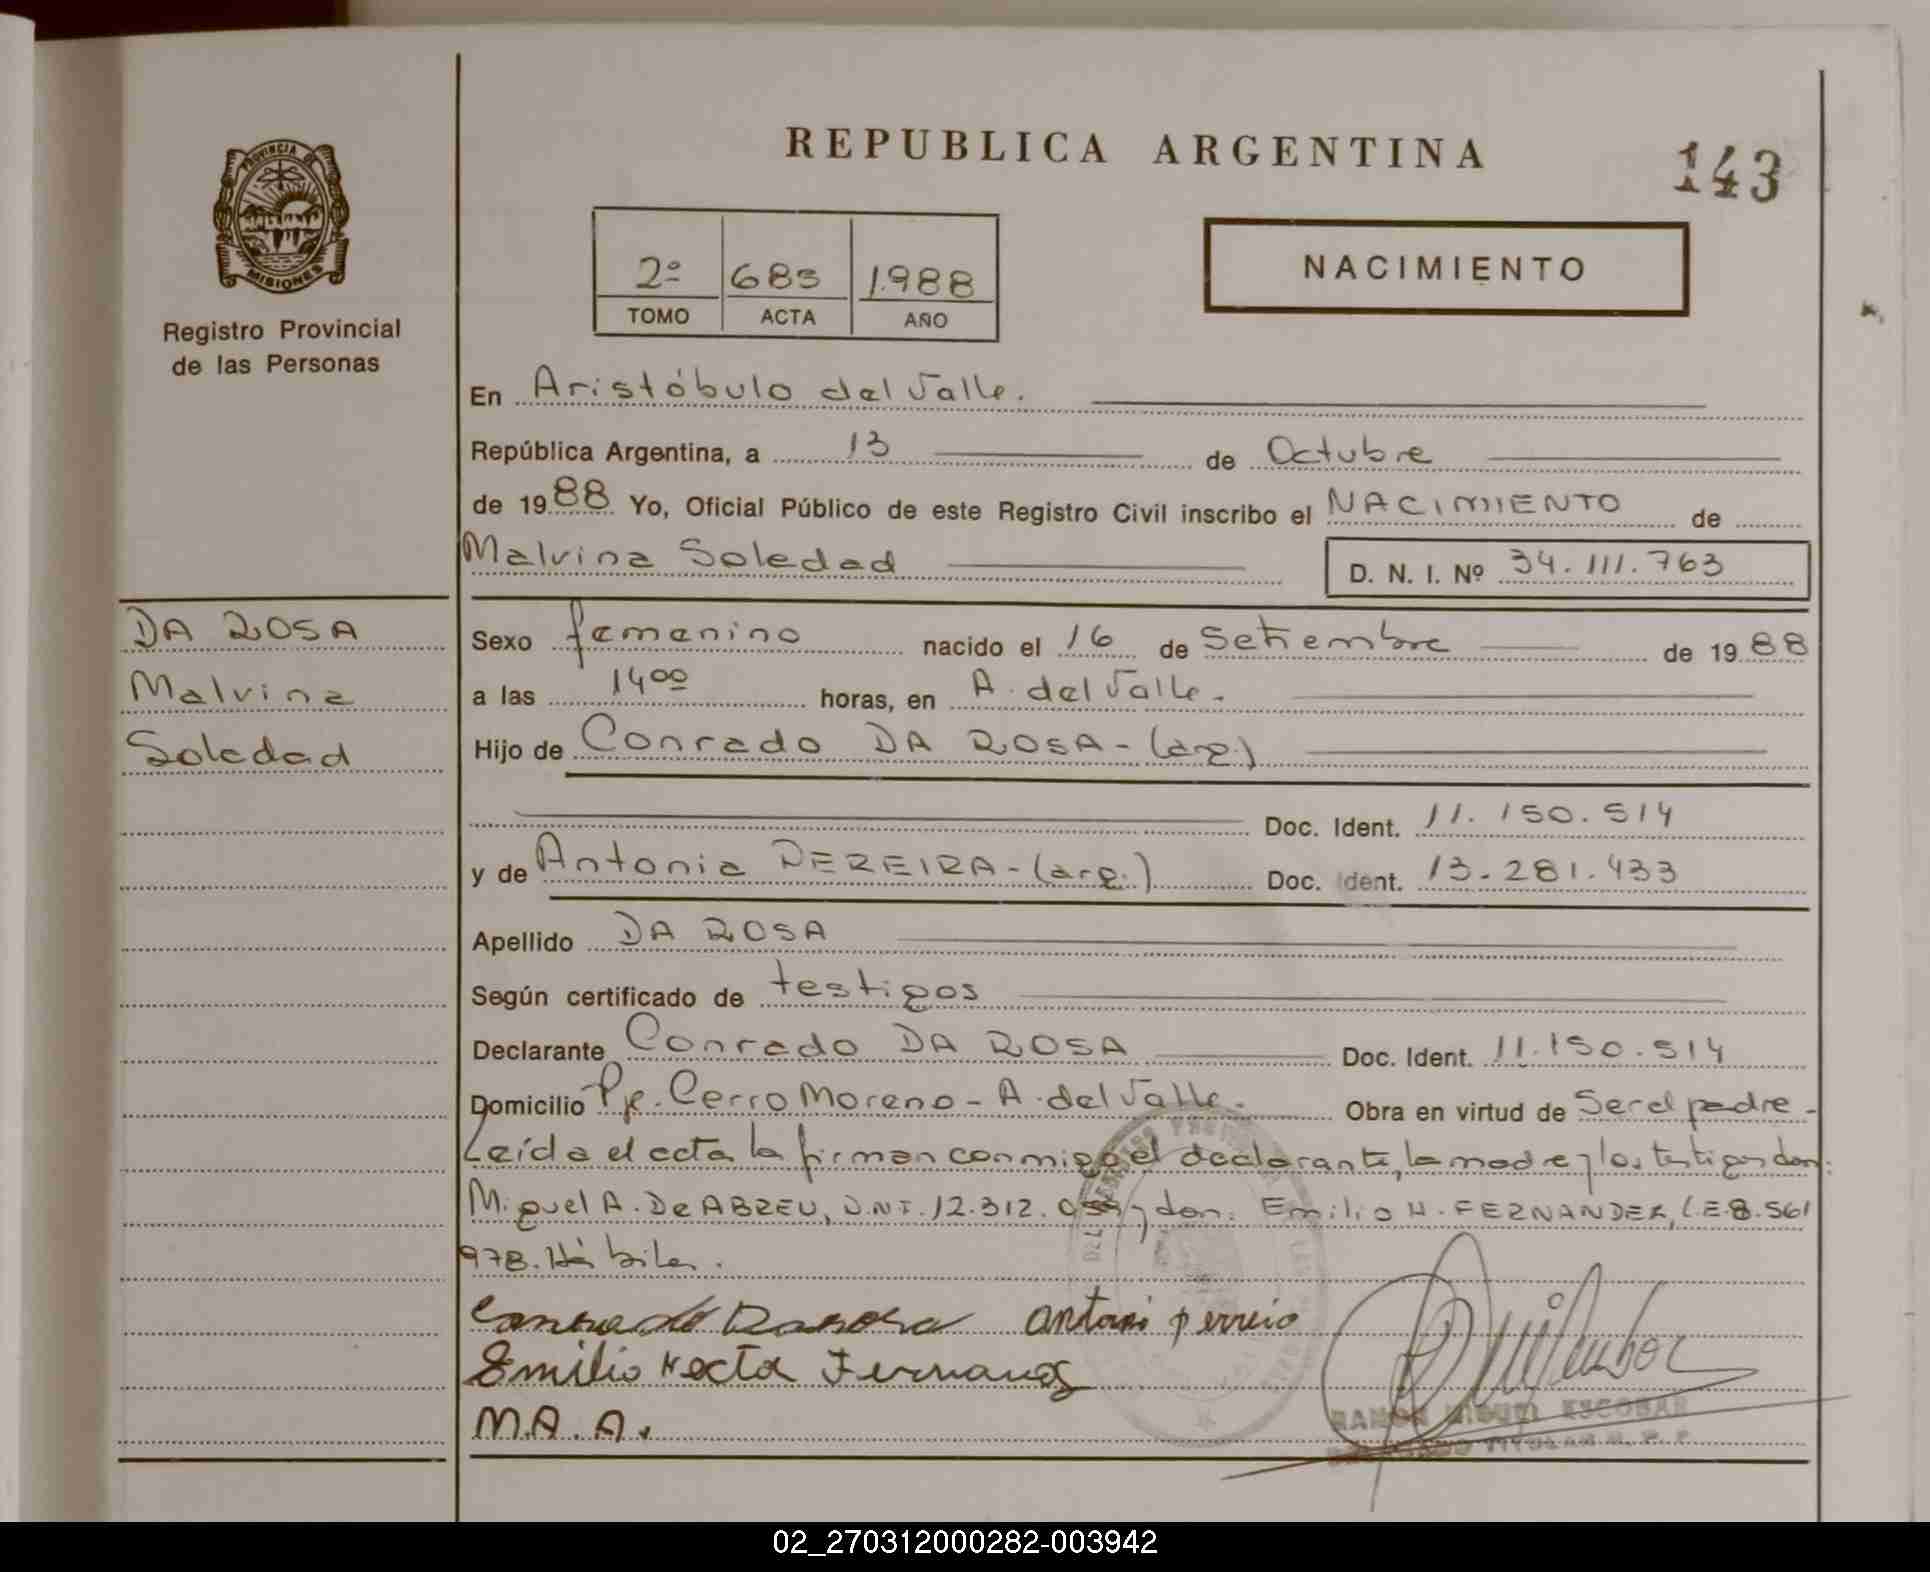 REPUBLICA ARGENTINA
143
PROVINCIA DE
MISIONES
Registro Provincial
de las Personas
2º 683 1.988
TOMO ACTA AÑO
NACIMIENTO
En Aristóbulo del Valle.
República Argentina, a 13 de Octubre
de 1988 Yo, Oficial Público de este Registro Civil inscribo el NACIMIENTO de
Malvina Soledad D. N. I. Nº 34.111.763
DA ROSA
Malvina
Soledad
Sexo femenino nacido el 16 de Setiembre de 1988
a las 14 00 horas, en A. del Valle.
Hijo de Conrado DA ROSA-(arg.)
Doc. Ident. 11.150.514
y de Antonia PEREIRA-(arg.) Doc. Ident. 13.281.433
Apellido DA ROSA
Según certificado de testigos
Declarante Conrado DA ROSA Doc. Ident. 11.150.514
Domicilio Pje. Cerro Moreno-A. del Valle. Obra en virtud de Ser el padre-
Leída el acta la firman conmigo el declarante, la madre y los testigos don:
Miguel A. De ABREU, D.N.I. 12.312. y don: Emilio H. FERNANDEZ, L.E. 8.561
978. Hábiles.
Conrado Darosa antoni perreio
Emilio Hector Fernandez
M.A.A.
RAMON MIGUEL ESCOBAR
DELEGADO TITULAR R. P. P.
02_270312000282-003942